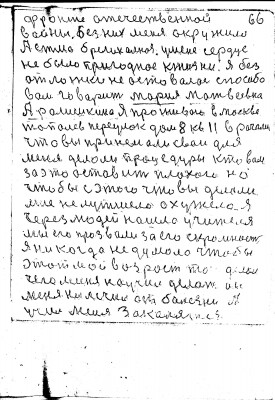 66
фронте отечественной
войны. Без них меня окружило
Астма бронхиальная, у меня сердце
не было пригодное к жизни. я без
не оставалас способо
вам говорит Мария Матвеевна
А я проживаю в москве
тополев переулок дом 8 кв 11 в
что вы принемали сваи для
меня делали процедуры кто вам
за это оставит плохого но
чтобы с этого что вы делали
мне не лутшело а хужела я
через людей нашла учителя
мы его прозвали за его скромность
я никогда не думала чтобы
этот мой возраст то делал
чего меня научил делат вы
меня колечили от балезни А
учил меня Закаляться